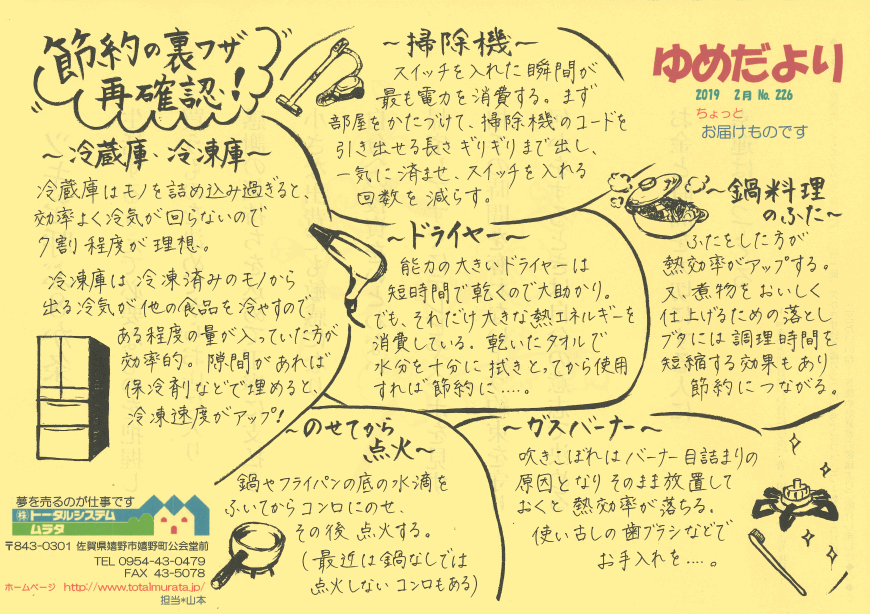 節約の裏ワザ
再確認!
~冷蔵庫・冷凍庫~
冷蔵庫はモノを詰め込み過ぎると、
効率よく冷気が回らないので
7割程度が理想。
冷凍庫は冷凍済みのモノから
出る冷気が他の食品を冷やすので、
ある程度の量が入っていた方が
効率的。隙間があれば
保冷剤などで埋めると、
冷凍速度がアップ!
~掃除機~
スイッチを入れた瞬間が
最も電力を消費する。まず
部屋をかたづけて、掃除機のコードを
引き出せる長さギリギリまで出し、
一気に済ませ、スイッチを入れる
回数を減らす。
ゆめだより
2019 2月 No.226
ちょっと
お届けものです
~ドライヤー~
能力の大きいドライヤーは
短時間で乾くので大助かり。
でも、それだけ大きな熱エネルギーを
消費している。乾いたタオルで
水分を十分に拭きとってから使用
すれば節約に....。
~鍋料理
のふた~
ふたをした方が
熱効率がアップする。
又、煮物をおいしく
仕上げるための落とし
ブタには調理時間を
短縮する効果もあり
節約につながる。
~のせてから
点火~
鍋やフライパンの底の水滴を
ふいてからコンロにのせ、
その後点火する。
(最近は鍋なしでは
点火しないコンロもある)
~ガスバーナー~
吹きこぼれはバーナー目詰まりの
原因となりそのまま放置して
おくと熱効率が落ちる。
使い古しの歯ブラシなどで
お手入れを....。
夢を売るのが仕事です
㈱トータルシステム
ムラタ
〒843-0301 佐賀県嬉野市嬉野町公会堂前
TEL 0954-43-0479
FAX 43-5078
ホームページ http://www.totalmurata.jp/
担当*山本